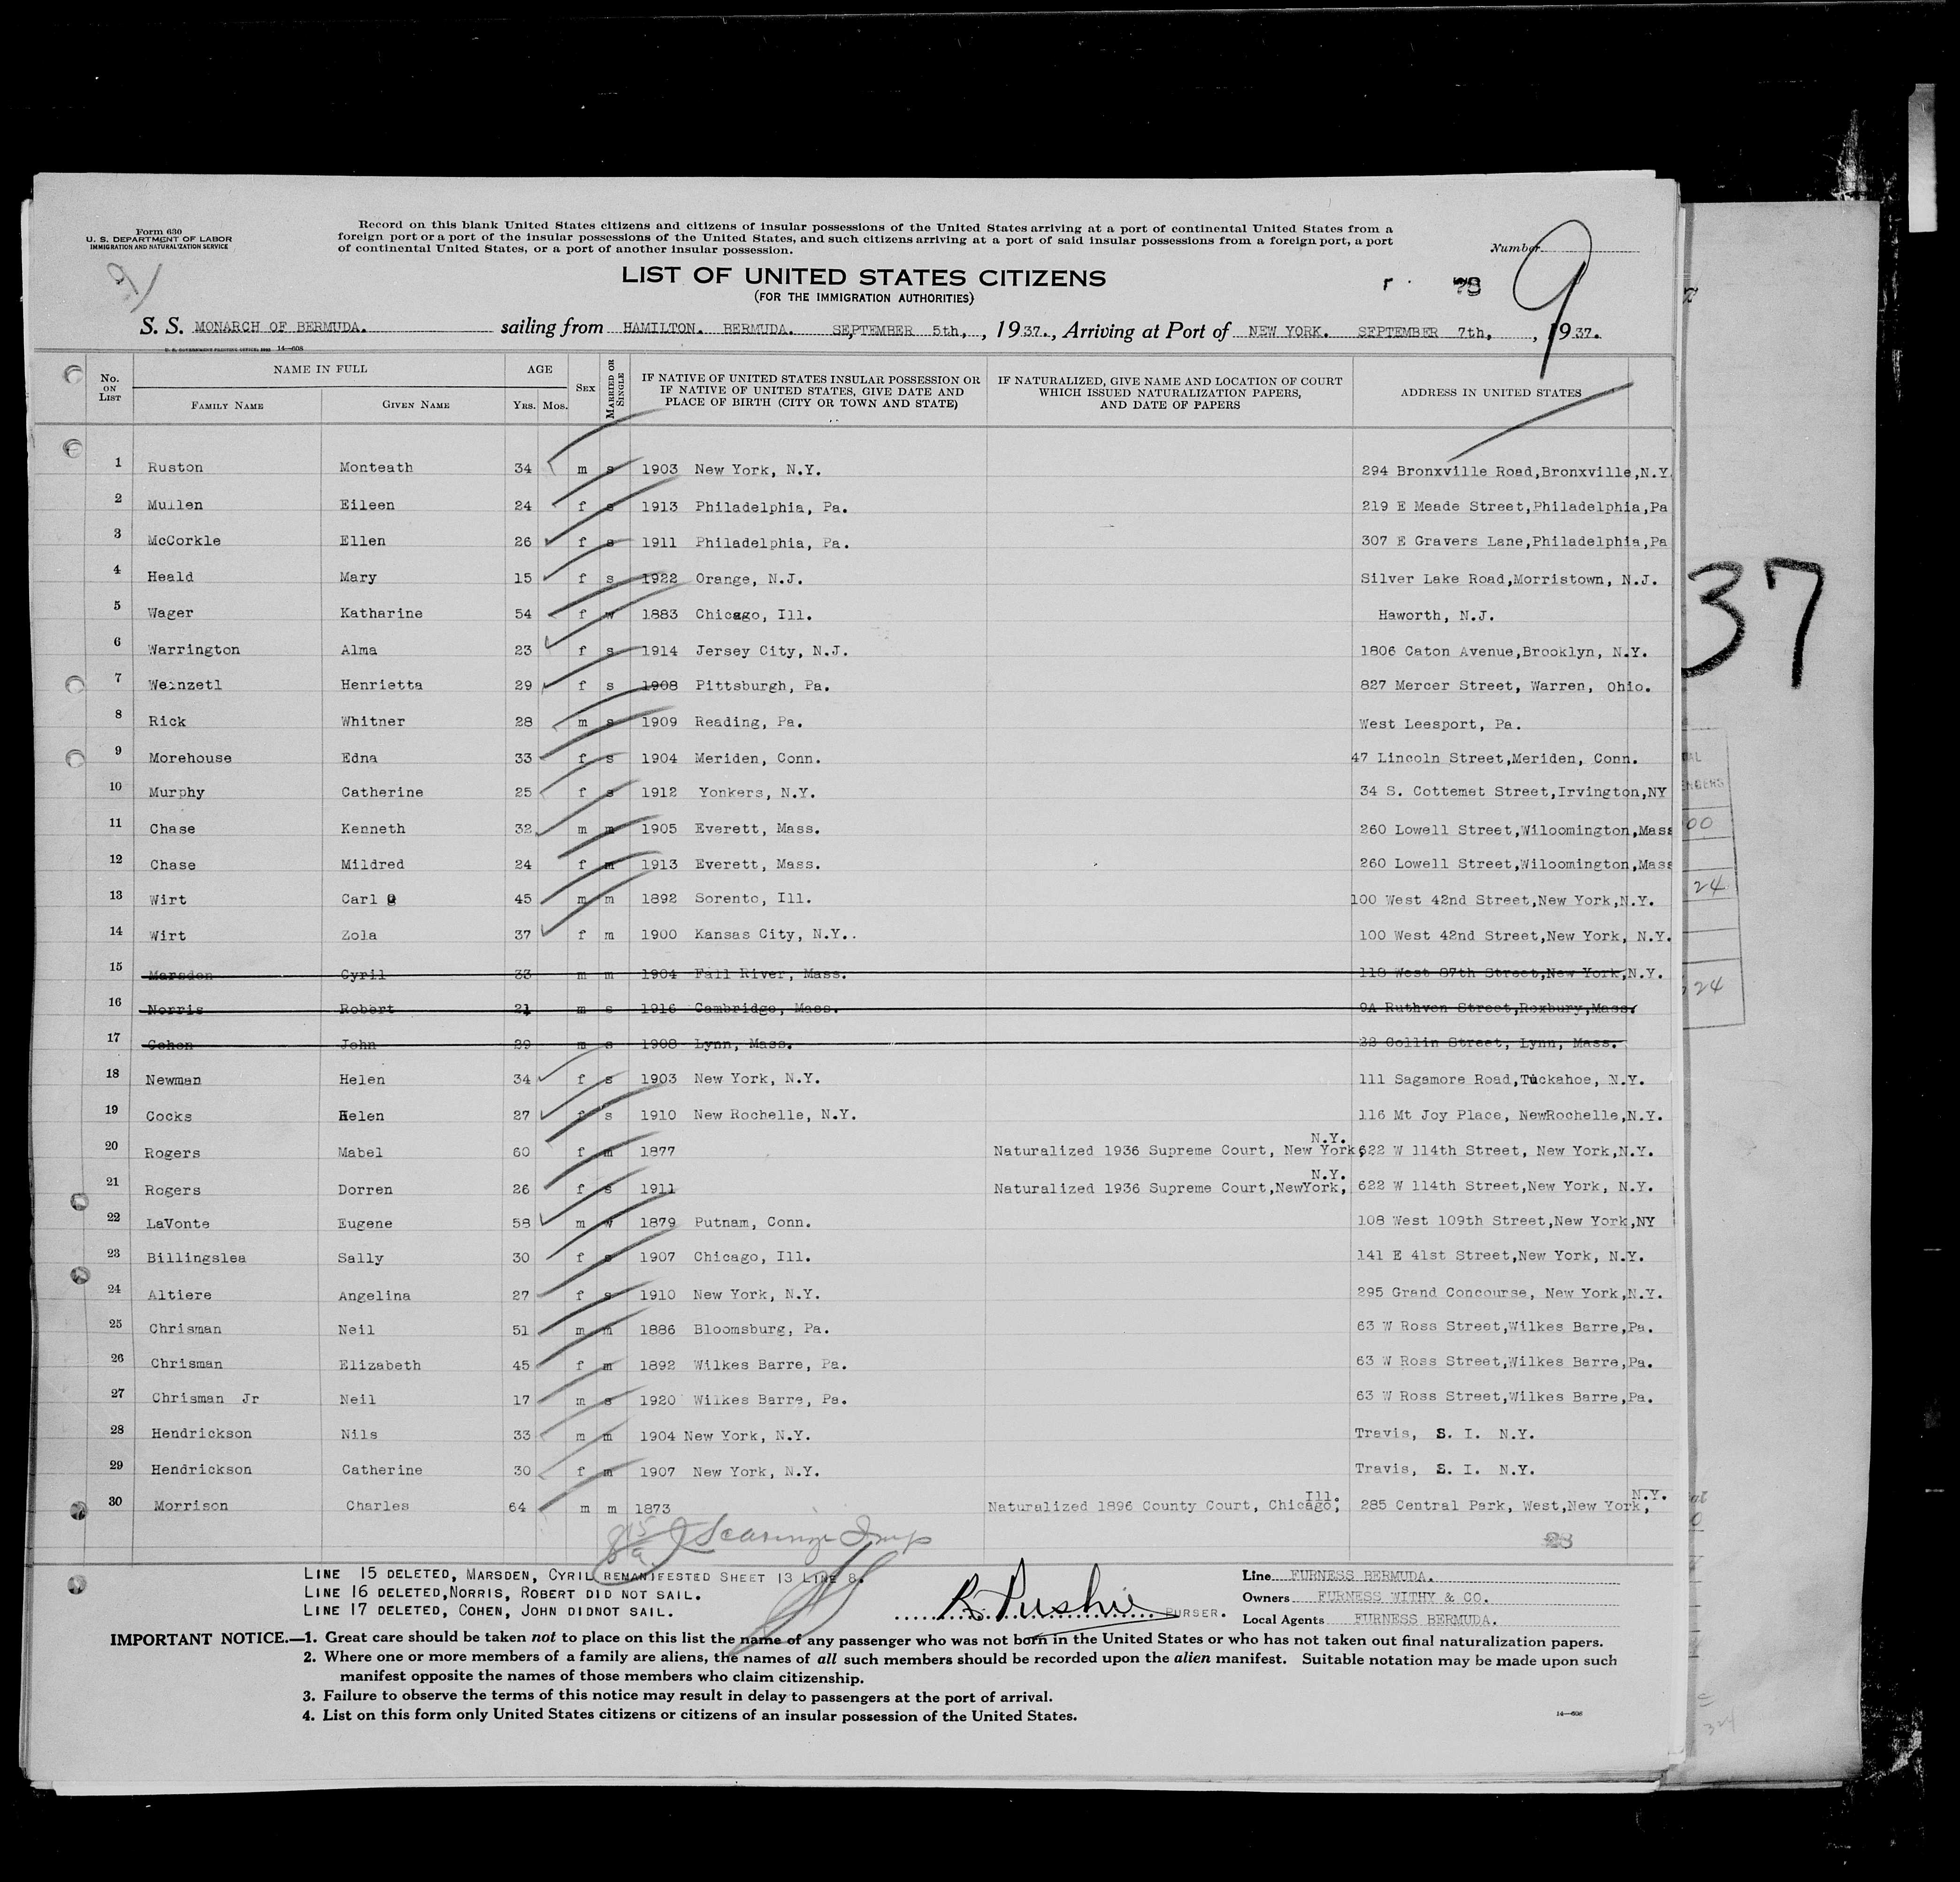 Form 630
U. S. DEPARTMENT OF LABOR
IMMIGRATION AND NATURALIZATION SERVICE
Record on this blank United States citizens and citizens of insular possessions of the United States arriving at a port of continental United States from a
foreign port or a port of the insular possessions of the United States, and such citizens arriving at a port of said insular possessions from a foreign port, a port
of continental United States, or a port of another insular possession.
Number 9
LIST OF UNITED STATES CITIZENS
(FOR THE IMMIGRATION AUTHORITIES)
S. S. MONARCH OF BERMUDA. sailing from HAMILTON. BERMUDA. SEPTEMBER 5th, , 1937., Arriving at Port of NEW YORK. SEPTEMBER 7th, , 1937.
14—608
No. ON LIST NAME IN FULL AGE SEX MARRIED OR SINGLE IF NATIVE OF UNITED STATES INSULAR POSSESSION OR IF NATIVE OF UNITED STATES, GIVE DATE AND PLACE OF BIRTH (CITY OR TOWN AND STATE) IF NATURALIZED, GIVE NAME AND LOCATION OF COURT WHICH ISSUED NATURALIZATION PAPERS, AND DATE OF PAPERS ADDRESS IN UNITED STATES
FAMILY NAME GIVEN NAME YRS. MOS.
1 Ruston Monteath 34 m s 1903 New York, N.Y. 294 Bronxville Road,Bronxville,N.Y.
2 Mullen Eileen 24 f s 1913 Philadelphia, Pa. 219 E Meade Street,Philadelphia,Pa
3 McCorkle Ellen 26 f s 1911 Philadelphia, Pa. 307 E Gravers Lane,Philadelphia,Pa
4 Heald Mary 15 f s 1922 Orange, N.J. Silver Lake Road,Morristown, N.J.
5 Wager Katharine 54 f w 1883 Chicago, Ill. Haworth, N.J.
6 Warrington Alma 23 f s 1914 Jersey City, N.J. 1806 Caton Avenue,Brooklyn, N.Y.
7 Weinzetl Henrietta 29 f s 1908 Pittsburgh, Pa. 827 Mercer Street, Warren, Ohio.
8 Rick Whitner 28 m s 1909 Reading, Pa. West Leesport, Pa.
9 Morehouse Edna 33 f s 1904 Meriden, Conn. 47 Lincoln Street,Meriden, Conn.
10 Murphy Catherine 25 f s 1912 Yonkers, N.Y. 34 S. Cottemet Street,Irvington,NY
11 Chase Kenneth 32 m m 1905 Everett, Mass. 260 Lowell Street,Wiloomington,Mass
12 Chase Mildred 24 f m 1913 Everett, Mass. 260 Lowell Street,Wiloomington,Mass
13 Wirt Carl 45 m m 1892 Sorento, Ill. 100 West 42nd Street,New York,N.Y.
14 Wirt Zola 37 f m 1900 Kansas City, N.Y.. 100 West 42nd Street,New York, N.Y.
15 Marsden Cyril 33 m m 1904 Fall River, Mass. 118 West 87th Street,New York,N.Y.
16 Norris Robert 21 m s 1916 Cambridge, Mass. 9A Ruthven Street,Roxbury,Mass.
17 Cohen John 29 m s 1908 Lynn, Mass. Collin Street, Lynn, Mass.
18 Newman Helen 34 f s 1903 New York, N.Y. 111 Sagamore Road,Tuckahoe, N.Y.
19 Cocks Helen 27 f s 1910 New Rochelle, N.Y. 116 Mt Joy Place, NewRochelle,N.Y.
20 Rogers Mabel 60 f m 1877 Naturalized 1936 Supreme Court, New York, N.Y. 622 W 114th Street, New York,N.Y.
21 Rogers Dorren 26 f s 1911 Naturalized 1936 Supreme Court,NewYork, N.Y. 622 W 114th Street,New York, N.Y.
22 LaVonte Eugene 58 m w 1879 Putnam, Conn. 108 West 109th Street,New York,NY
23 Billingslea Sally 30 f s 1907 Chicago, Ill. 141 E 41st Street,New York, N.Y.
24 Altiere Angelina 27 f s 1910 New York, N.Y. 295 Grand Concourse, New York,N.Y.
25 Chrisman Neil 51 m m 1886 Bloomsburg, Pa. 63 W Ross Street,Wilkes Barre,Pa.
26 Chrisman Elizabeth 45 f m 1892 Wilkes Barre, Pa. 63 W Ross Street,Wilkes Barre,Pa.
27 Chrisman Jr Neil 17 m s 1920 Wilkes Barre, Pa. 63 W Ross Street,Wilkes Barre,Pa.
28 Hendrickson Nils 33 m m 1904 New York, N.Y. Travis, S. I. N.Y.
29 Hendrickson Catherine 30 f m 1907 New York, N.Y. Travis, S. I. N.Y.
30 Morrison Charles 64 m m 1873 Naturalized 1896 County Court, Chicago, Ill. 285 Central Park, West,New York, N.Y.
LINE 15 DELETED, MARSDEN, CYRIL REMANIFESTED SHEET 13 LINE 8.
LINE 16 DELETED,NORRIS, ROBERT DID NOT SAIL.
LINE 17 DELETED, COHEN, JOHN DIDNOT SAIL.
R. Pushie PURSER.
Line FURNESS BERMUDA.
Owners FURNESS WITHY & CO.
Local Agents FURNESS BERMUDA.
IMPORTANT NOTICE.—1. Great care should be taken not to place on this list the name of any passenger who was not born in the United States or who has not taken out final naturalization papers.
2. Where one or more members of a family are aliens, the names of all such members should be recorded upon the alien manifest. Suitable notation may be made upon such
manifest opposite the names of those members who claim citizenship.
3. Failure to observe the terms of this notice may result in delay to passengers at the port of arrival.
4. List on this form only United States citizens or citizens of an insular possession of the United States.
14—608
37
00
24
24